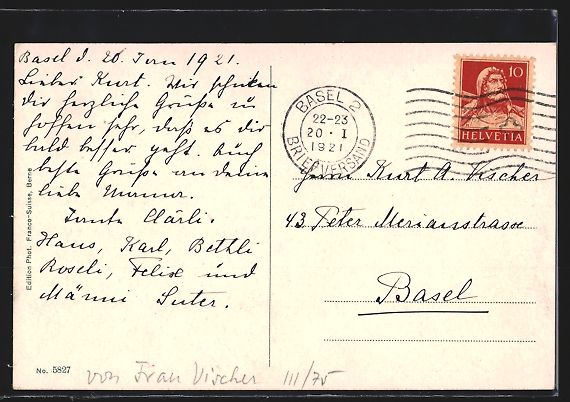 Basel d. 20. Jan 1921.
Lieber Kurt. Wir schicken
dir herzliche Grüsse u.
hoffen sehr, dass es dir
bald besser geht. Auch
beste Grüsse an deine
liebe Mamma.
Tante Clärli.
Hans, Karl, Bethli
Roseli, Felix und
Männi Suter.
BASEL 2
22-23
20 · I
1921
BRIEFVERSAND
10
HELVETIA
Herrn Kurt A. Vischer
43. Peter Merianstrasse
Basel
Edition Phot. Franco-Suisse, Berne
No. 5827
von Frau Vischer III/75